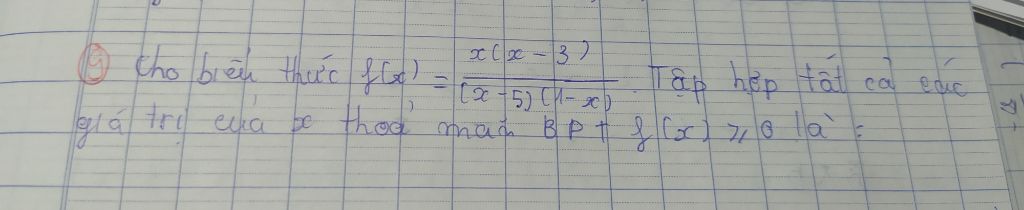 9 Cho biểu thức f(x) = x(x - 3) / (x - 5)(1 - x). Tập hợp tất cả các
giá trị của x thoả mãn BPT f(x) ≥ 0 là: